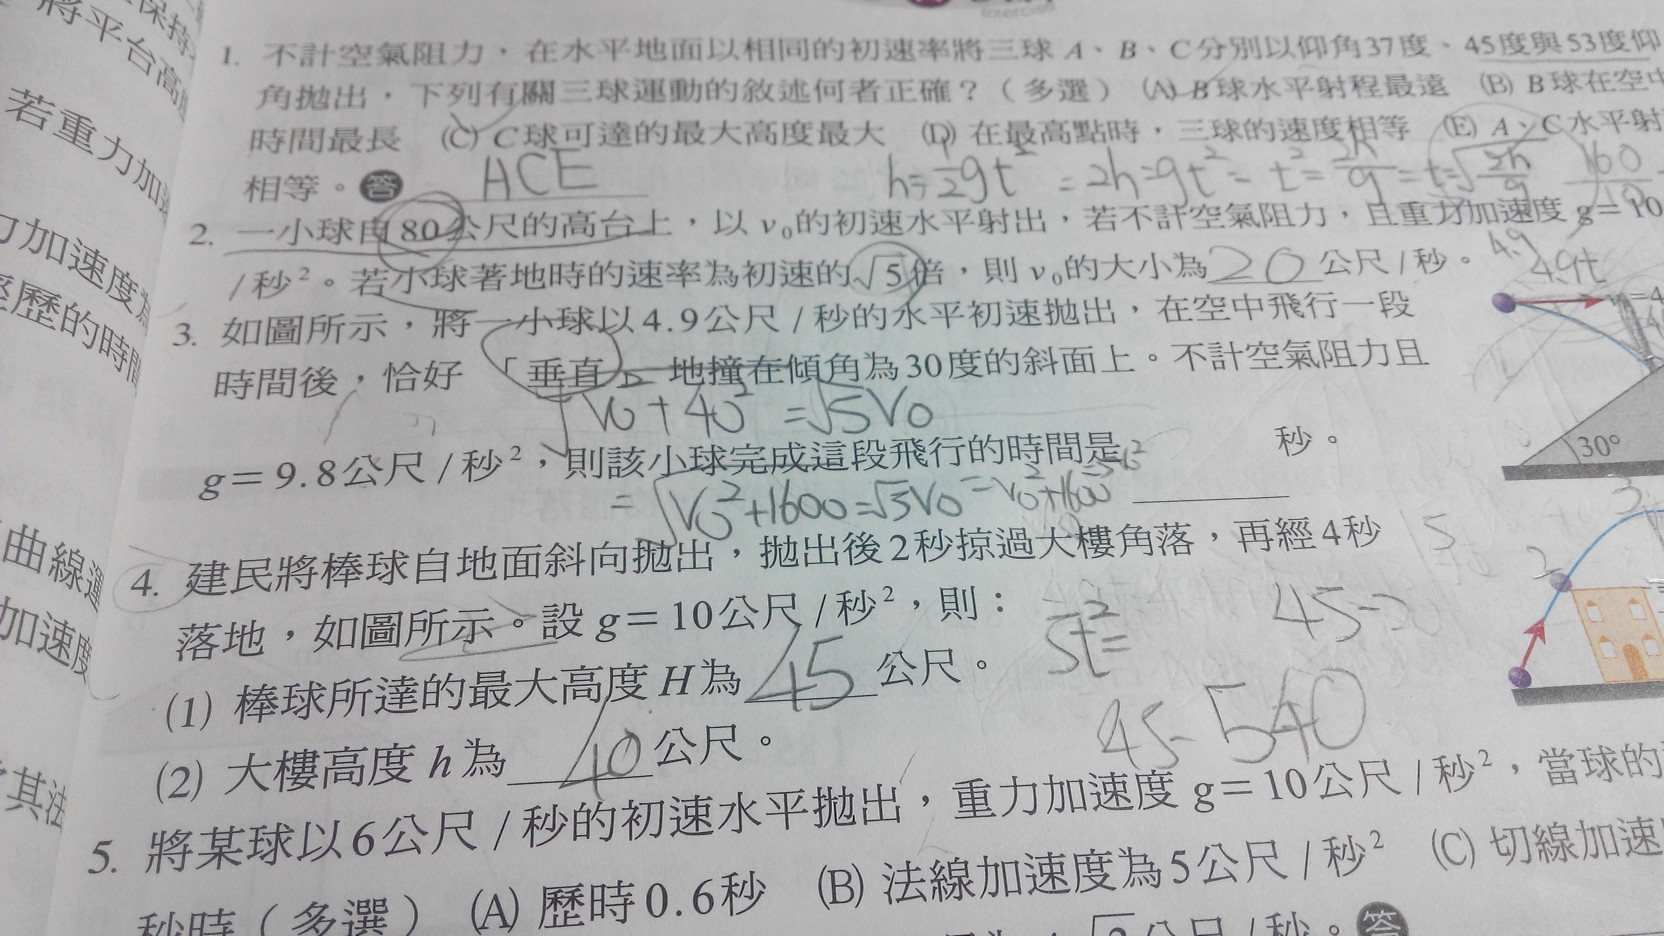 保持
將平台高
若重力加
力加速度為
歷的時間
曲線運
加速度
其法
exercise
1. 不計空氣阻力，在水平地面以相同的初速率將三球 A、B、C分別以仰角37度、45度與53度仰
角拋出，下列有關三球運動的敘述何者正確？（多選） (A) B球水平射程最遠 (B) B球在空中
時間最長 (C) C球可達的最大高度最大 (D) 在最高點時，三球的速度相等 (E) A、C水平射
相等。答 ACE
h=1/2gt² = 2h=gt² = t²=2h/g = t=√2h/g 160/10
2. 一小球自80公尺的高台上，以 v₀的初速水平射出，若不計空氣阻力，且重力加速度 g=10
/秒²。若小球著地時的速率為初速的√5倍，則 v₀的大小為 20 公尺/秒。
4.9
4.9t
3. 如圖所示，將一小球以4.9公尺/秒的水平初速拋出，在空中飛行一段
時間後，恰好「垂直」地撞在傾角為30度的斜面上。不計空氣阻力且
√V0+40² =√5V0
g=9.8公尺/秒²，則該小球完成這段飛行的時間是 秒。
30°
=√V0²+1600=√5V0
4. 建民將棒球自地面斜向拋出，拋出後2秒掠過大樓角落，再經4秒
落地，如圖所示。設 g=10公尺/秒²，則：
5t²=
2
3
5
(1) 棒球所達的最大高度 H 為 45 公尺。
(2) 大樓高度 h 為 40 公尺。
45-5 40
5. 將某球以6公尺/秒的初速水平拋出，重力加速度 g=10公尺/秒²，當球的
秒時（多選） (A) 歷時0.6秒 (B) 法線加速度為5公尺/秒² (C) 切線加速
公尺/秒。答